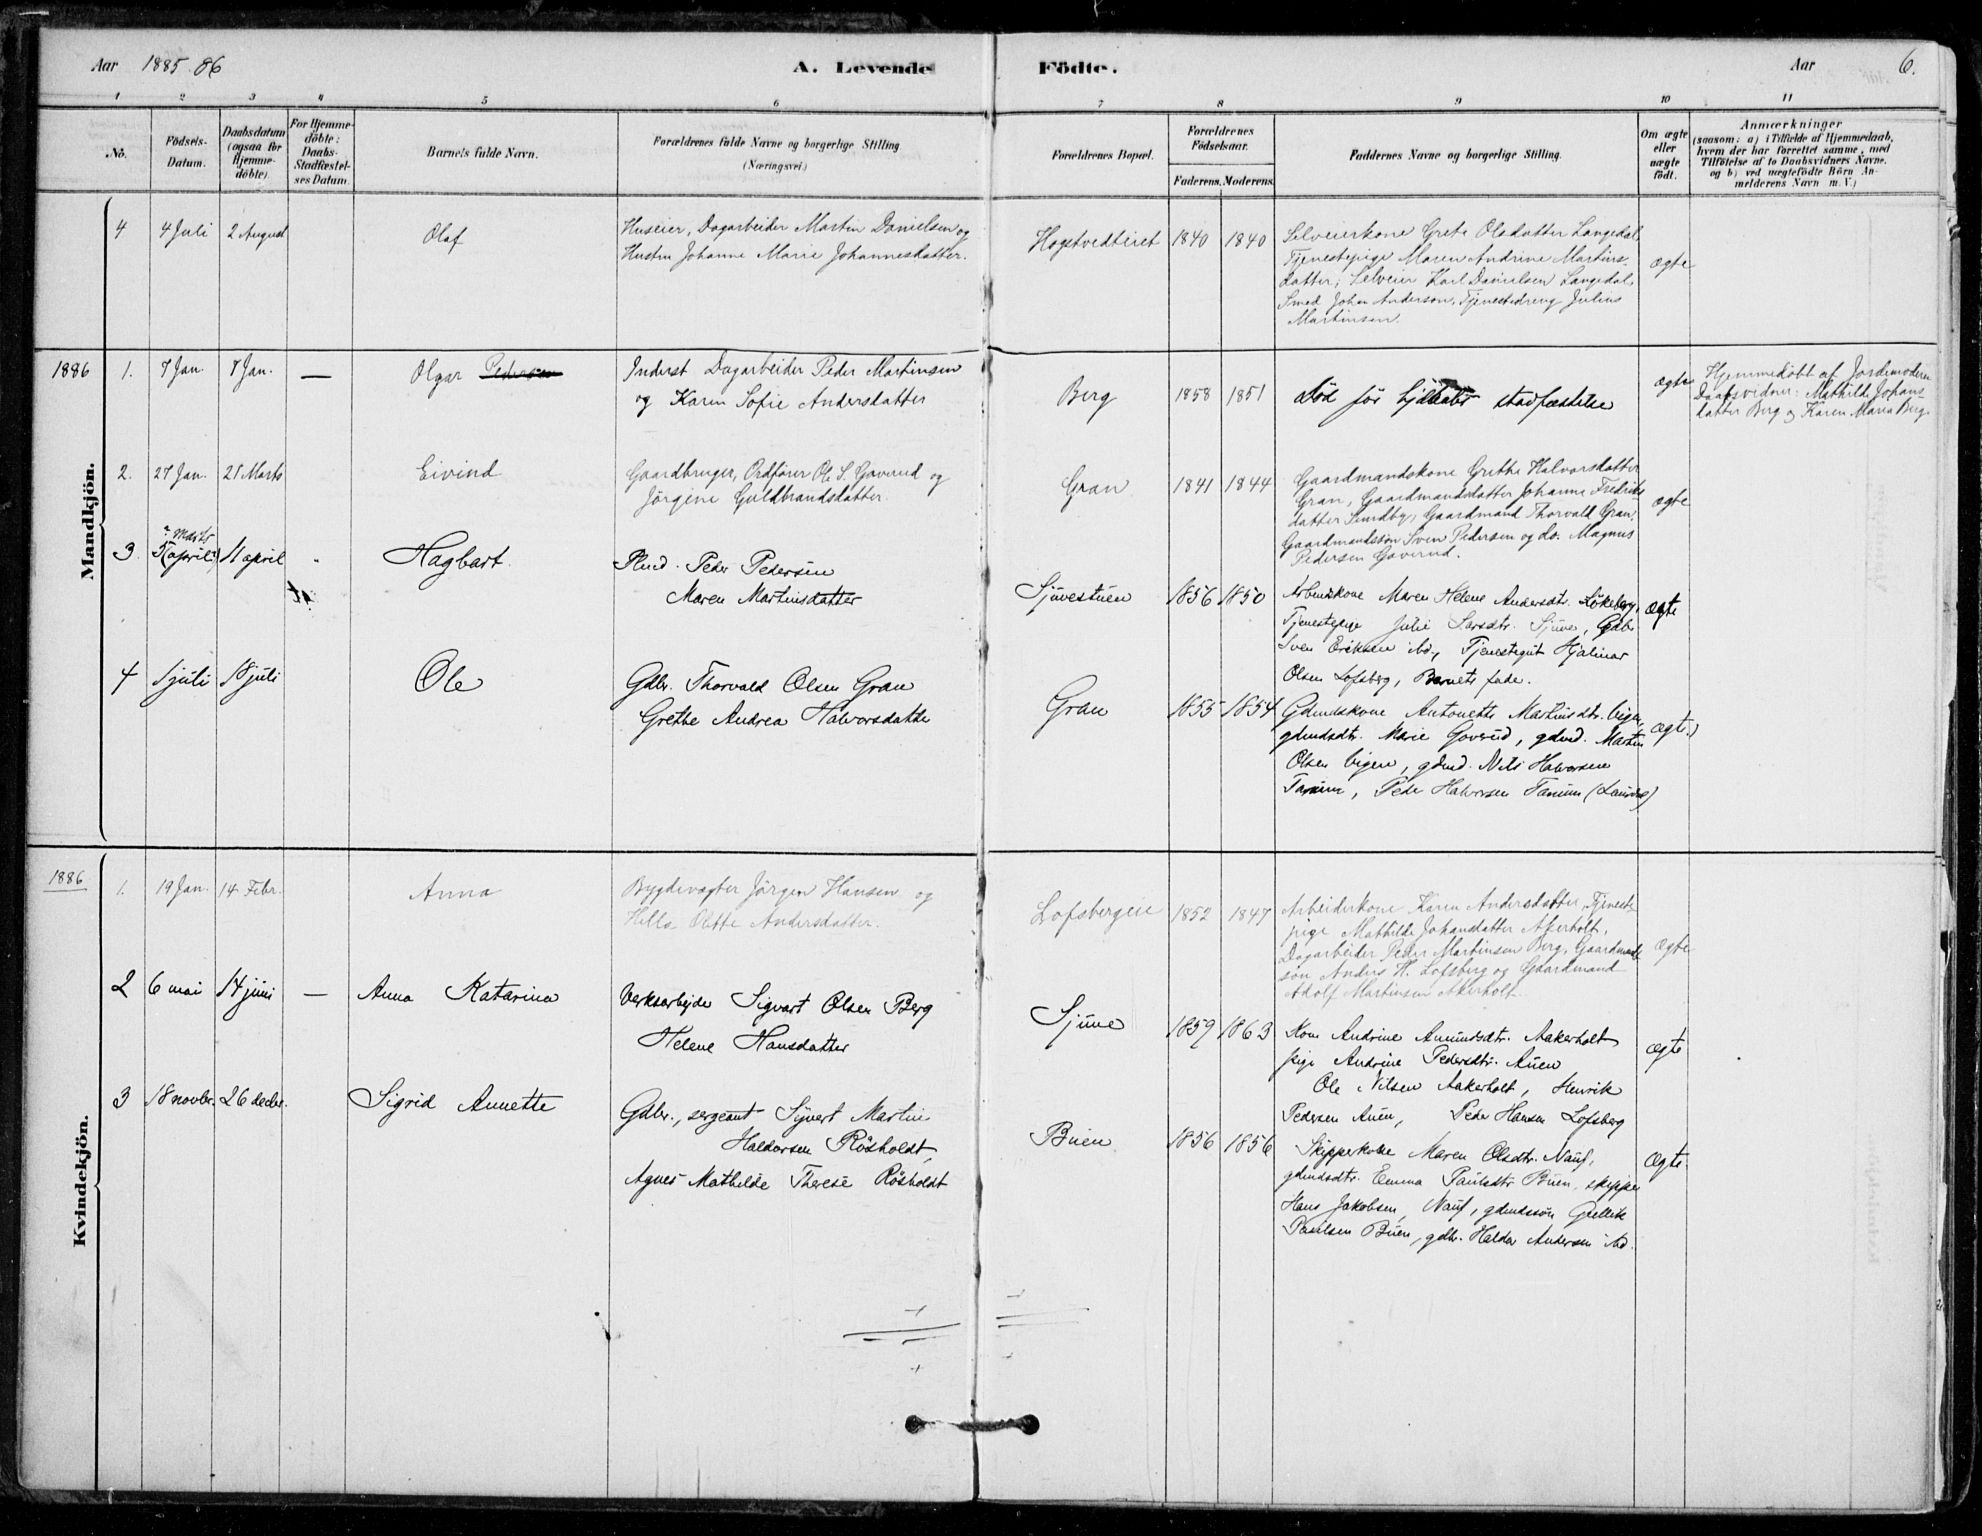 Aar 1885-86
A. Levende Födte.
Aar
6.
1 2 3 4 5 6 7 8 9 10 11
No.
Födsels-
Datum.
Daabsdatum
(ogsaa for
Hjemme-
döbte).
For Hjemme-
döbte:
Daabs-
Stadfæstel-
ses Datum.
Barnets fulde Navn.
Forældrenes fulde Navne og borgerlige Stilling
(Næringsvei.)
Forældrenes Bopæl.
Forældrenes
Födselsaar.
Faderens. Moderens.
Faddernes Navne og borgerlige Stilling.
Om ægte
eller
uægte
födt.
Anmærkninger
(saasom: a) i Tilfælde af Hjemmedaab,
hvem der har forrettet samme, med
Tilföielse af to Daabsvidners Navne.
og b) ved uægtefödte Börn An-
melderens Navn m. V.)
4 4 Juli 2 August Olaf
Huseier, Dagarbeider Martin Danielsen og
Hustru Johanne Marie Johannesdatter.
Hogstvedteiet 1840 1840
Selveierkone Grete Olsdatter Langedal,
Tjenestepige Maren Andrine Martins-
datter, Selveier Karl Danielsen Langedal,
Smed Johan Anderson, Tjenestedreng Julius
Martinsen.
ægte
1886
Mandkjön.
1. 7 Jan. 7 Jan. — Olgar Pedersen
Inderst Dagarbeider Peder Martinsen
og Karen Sofie Andersdatter
Berg 1858 1851
Död før stadfæstelse
ægte
Hjemmedöbt af Jordemoderen
Daabsvidner: Mathilde Johans
datter Berg og Karen Maria Berg.
2. 27 Jan. 21 Marts Eivind
Gaardbruger, Ordfører Ole S. Goverud og
Jørgine Guldbrandsdatter.
Gran 1841 1844
Gaardmandskone Grethe Halvorsdatter
Gran, Gaardmandsdatter Johanne Fredriks
datter Sundby, Gaardmand Thorvald Gran,
Gaardmandssøn Sven Pedersen og do. Magnus
Pedersen Goverud.
ægte
Marts
3. 5 (april) 11 april " Hagbart.
Plmd. Peder Pedersen
Maren Martinsdatter
Sjuvestuen 1856 1850
Arbmdskone Maren Helene Andersdtr. Løkeberg,
Tjenestepige Julie Larsdtr. Sjuve, Gdbr.
Sven Eriksen ibd., Tjenestegut Hjalmar
Olsen Lofsberg, Barnets fader.
ægte
4 1 juli 18 juli Ole
Gdbr. Thorvald Olsen Gran
Grethe Andrea Halvorsdatter
Gran 1855 1854
Gdmdskone Antonette Martinsdtr. Vigen,
gdmdsdtr. Marie Goverud, gdmd. Martin
Olsen Vigen, gdmd. Nils Halvorsen
Tanum, Peder Halvorsen Tanum
ægte
1886
Kvindekjön.
1. 19 Jan. 14 Febr. Anna
Bygdevægter Jørgen Hansen og
Olette Andersdatter.
Lofsbergeie 1852 1847
Arbeiderkone Karen Andersdatter, Tjeneste
pige Mathilde Johansdatter Akerholt,
Dagarbeider Peder Martinsen Berg, Gaardmands
søn Anders H. Lofsberg og Gaardmand
Adolf Martinsen Akerholt.
ægte
2 6 mai 14 juni — Anna Katarina
Verksarbejder Sigvart Olsen Berg
Helene Hansdatter
Sjuve 1859 1863
Kone Andrine Amundsdtr. Aakerholt
pige Andrine Pedersdtr. Auen
Ole Nilsen Aakerholt, Henrik
Pedersen Auen, Peder Hansen Lofsberg
ægte
3 18 novbr. 26 decbr. Sigrid Annette
Gdbr., sergeant Sivert Martin
Haldorsen Rösholdt,
Agnes Mathilde Therese Rösholdt
Buen 1856 1856
Skipperkone Maren Olsdtr. Nauf,
gdmdsdtr. Emma Paulsdtr Buen, skipper
Hans Jakobsen Nauf, gdmdssön Gullik
Paulsen Buen, gdbr. Haldor Andersen ibd.
ægte.